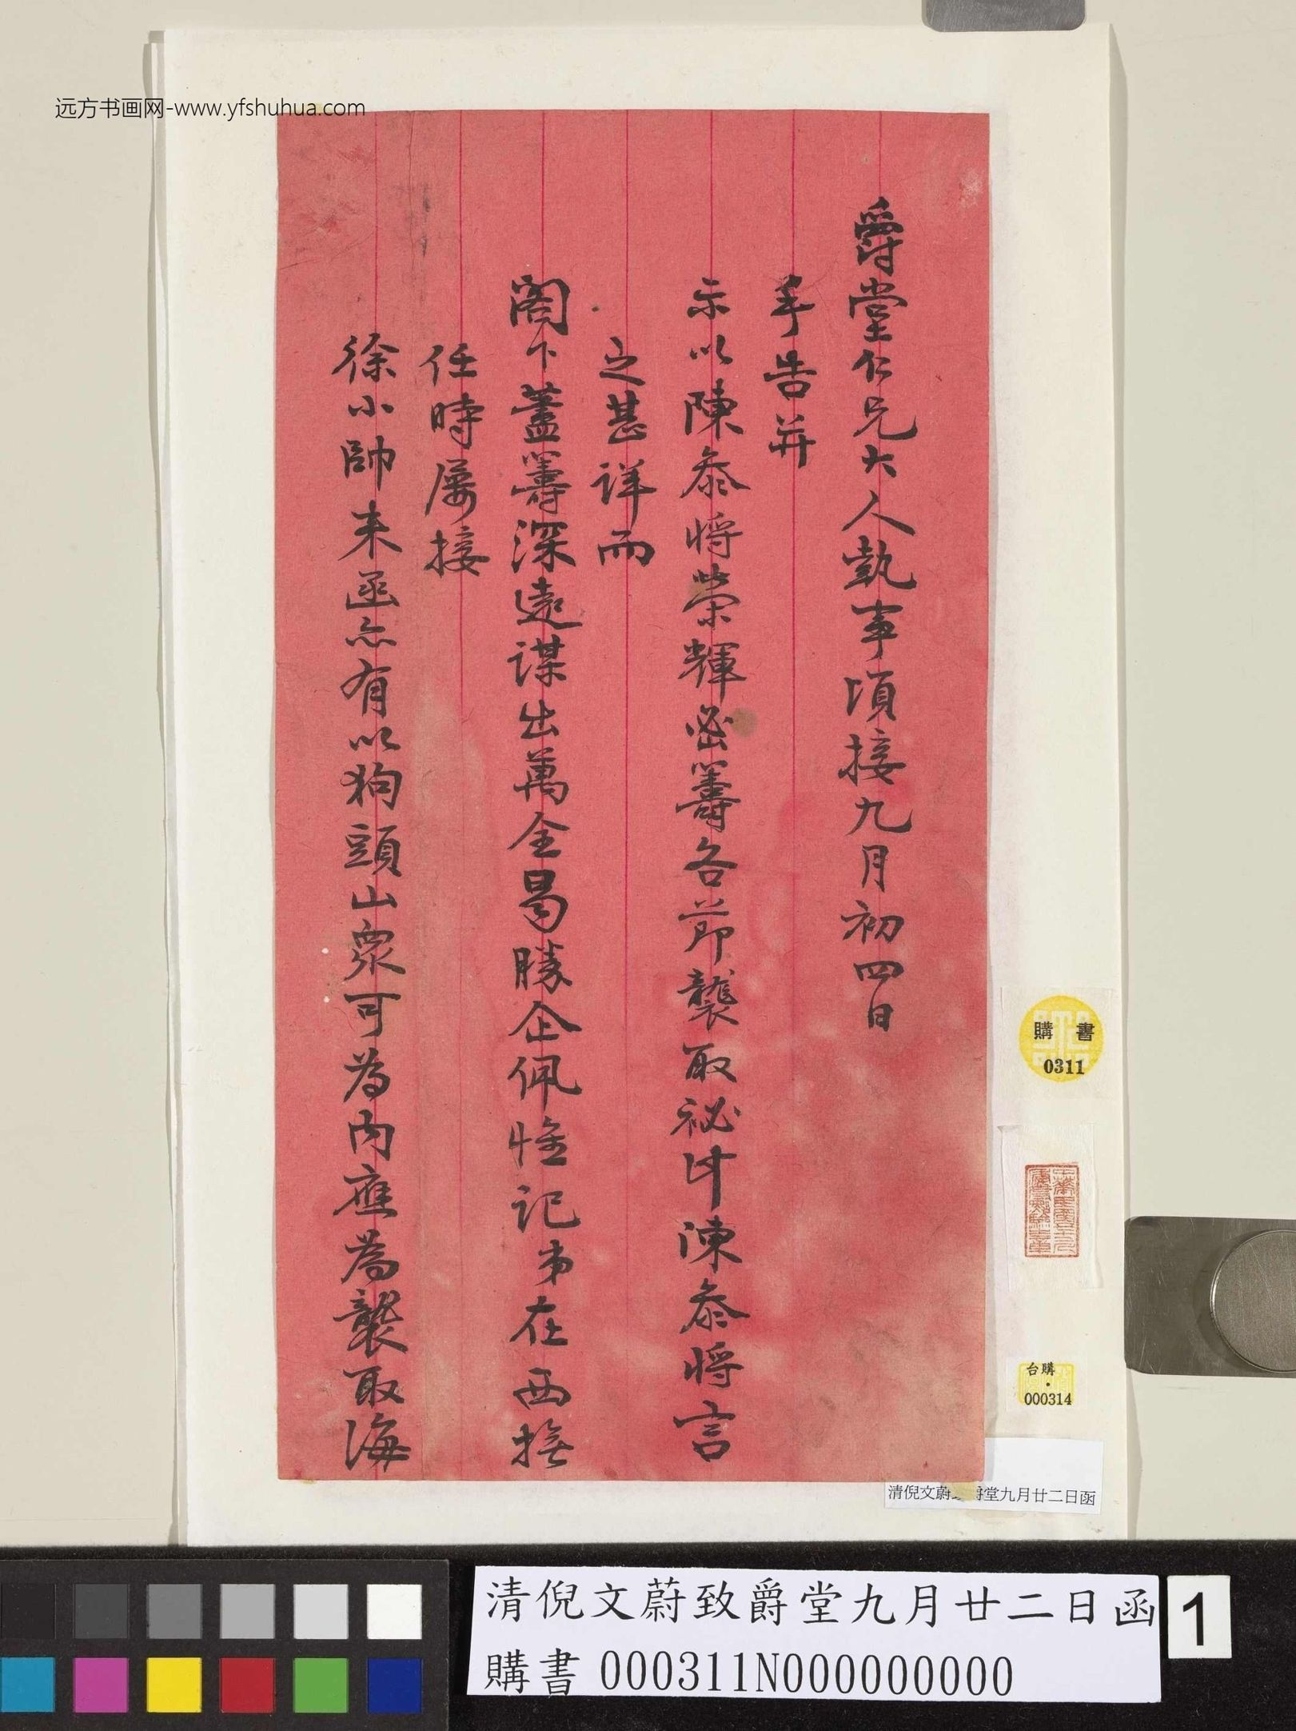 远方书画网-www.yfshuhua.com
爵堂仁兄大人執事頃接九月初四日
手告并
示以陳叅將榮輝密籌各節襲取祕計陳叅將言
之甚詳而
閣下蓋籌深遠謀出萬全曷勝企佩惟記弟在西撫
任時屢接
徐小帥来函亦有以狗頭山衆可為内應為襲取海
購書
0311
台購
000314
清倪文蔚致爵堂九月廿二日函
清倪文蔚致爵堂九月廿二日函
購書 000311N000000000
1